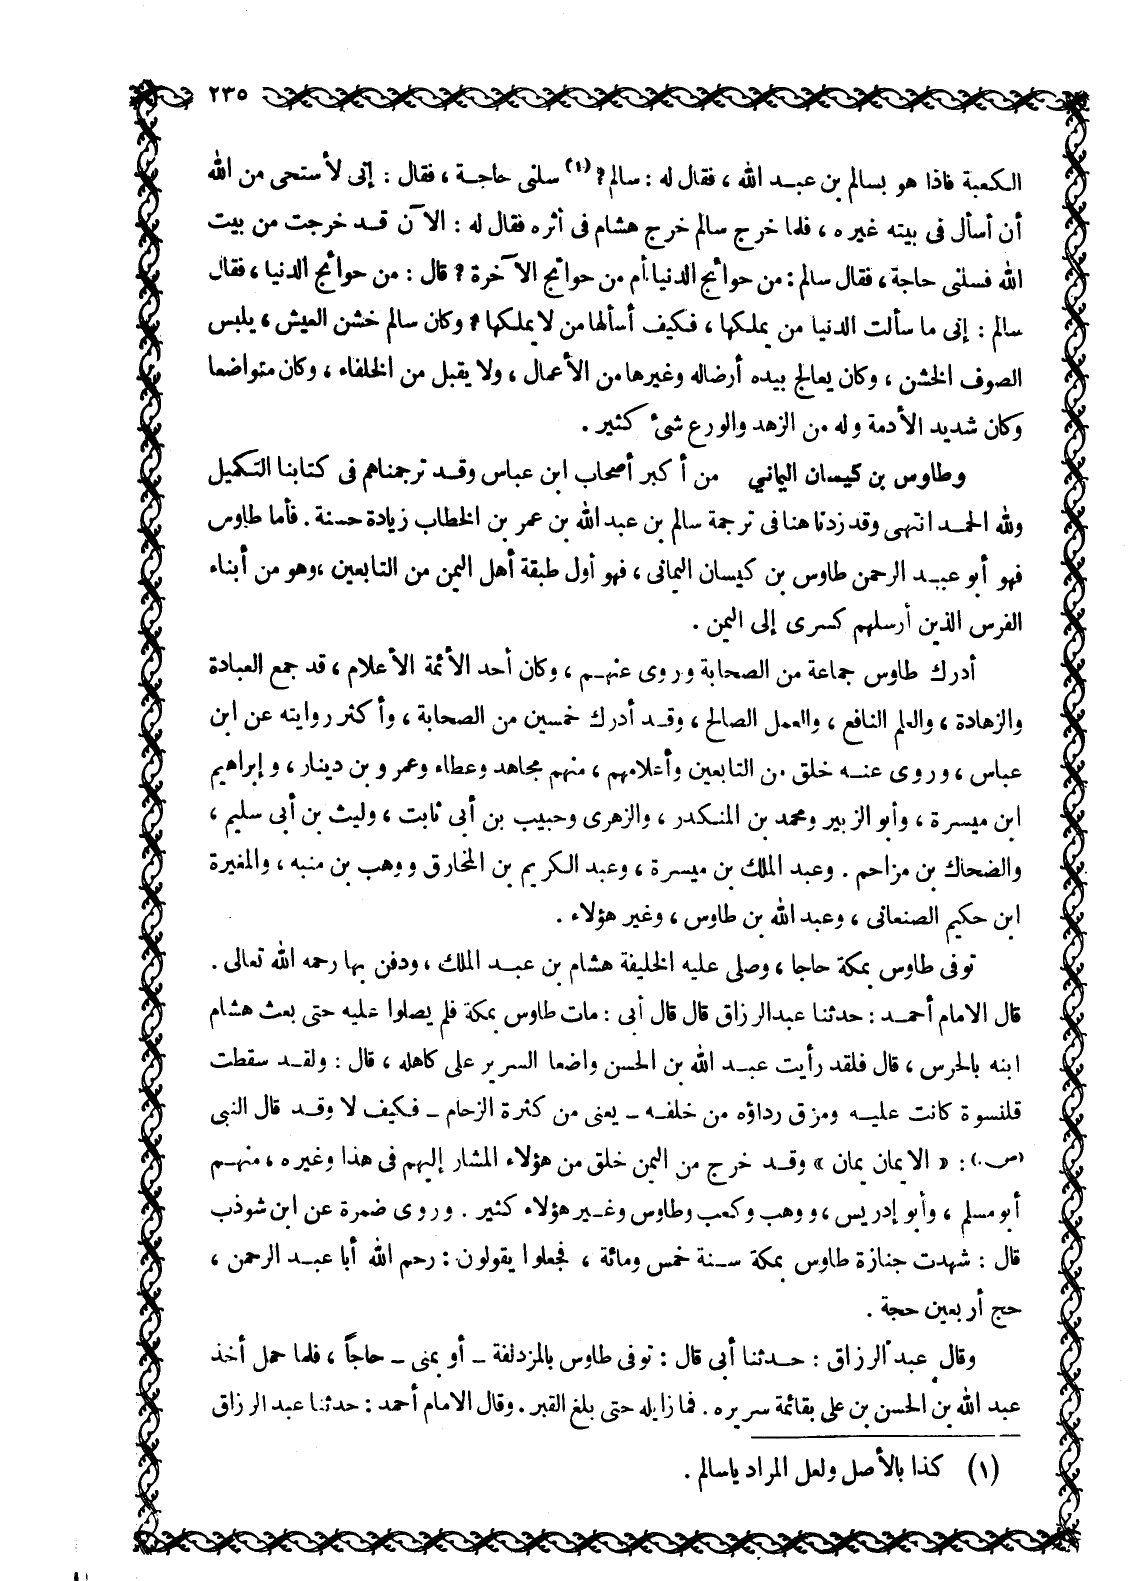 ٢٣٥
الكعبة فاذا هو بسالم بن عبد الله ، فقال له : سالم ؟ (١) سلنى حاجة ، فقال : إنى لأستحى من الله
أن أسأل فى بيته غيره ، فلما خرج سالم خرج هشام فى أثره فقال له : الآن قد خرجت من بيت
الله فسلنى حاجة ، فقال سالم : من حوائج الدنيا أم من حوائج الآخرة ؟ قال : من حوائج الدنيا ، فقال
سالم : إنى ما سألت الدنيا من يملكها ، فكيف أسألها من لا يملكها ؟ وكان سالم خشن العيش ، يلبس
الصوف الخشن ، وكان يعالج بيده أرضاله وغيرها من الأعمال ، ولا يقبل من الخلفاء ، وكان متواضعا
وكان شديد الأدمة وله من الزهد والورع شئ كثير .
وطاوس بن كيسان اليماني من أكبر أصحاب ابن عباس وقد ترجمناهم فى كتابنا التكميل
ولله الحمد انتهى وقد زدنا هنا فى ترجمة سالم بن عبد الله بن عمر بن الخطاب زيادة حسنة . فأما طاوس
فهو أبو عبد الرحمن طاوس بن كيسان اليمانى ، فهو أول طبقة أهل اليمن من التابعين ، وهو من أبناء
الفرس الذين أرسلهم كسرى إلى اليمن .
أدرك طاوس جماعة من الصحابة وروى عنهم ، وكان أحد الأئمة الأعلام ، قد جمع العبادة
والزهادة ، والعلم النافع ، والعمل الصالح ، وقد أدرك خمسين من الصحابة ، وأكثر روايته عن ابن
عباس ، وروى عنه خلق من التابعين وأعلامهم ، منهم مجاهد وعطاء وعمرو بن دينار ، وإبراهيم
ابن ميسرة ، وأبو الزبير ومحمد بن المنكدر ، والزهرى وحبيب بن أبى ثابت ، وليث بن أبى سليم ،
والضحاك بن مزاحم . وعبد الملك بن ميسرة ، وعبد الكريم بن المخارق ووهب بن منبه ، والمغيرة
ابن حكيم الصنعانى ، وعبد الله بن طاوس ، وغير هؤلاء .
توفى طاوس بمكة حاجا ، وصلى عليه الخليفة هشام بن عبد الملك ، ودفن بها رحمه الله تعالى .
قال الامام أحمد : حدثنا عبد الرزاق قال قال أبى : مات طاوس بمكة فلم يصلوا عليه حتى بعث هشام
ابنه بالحرس ، قال فلقد رأيت عبد الله بن الحسن واضعا السرير على كاهله ، قال : ولقد سقطت
قلنسوة كانت عليه ومزق رداؤه من خلفه – يعنى من كثرة الزحام – فكيف لا وقد قال النبى
(ص.) : « الايمان يمان » وقد خرج من اليمن خلق من هؤلاء المشار إليهم فى هذا وغيره ، منهم
أبو مسلم ، وأبو إدريس ، ووهب وكعب وطاوس وغير هؤلاء كثير . وروى ضمرة عن ابن شوذب
قال : شهدت جنازة طاوس بمكة سنة خمس ومائة ، فجعلوا يقولون : رحم الله أبا عبد الرحمن ،
حج أربعين حجة .
وقال عبد الرزاق : حدثنا أبى قال : توفى طاوس بالمزدلفة – أو بمنى – حاجاً ، فلما حمل أخذ
عبد الله بن الحسن بن على بقائمة سريره . فما زايله حتى بلغ القبر . وقال الامام أحمد : حدثنا عبد الرزاق
(١) كذا بالأصل ولعل المراد ياسالم .